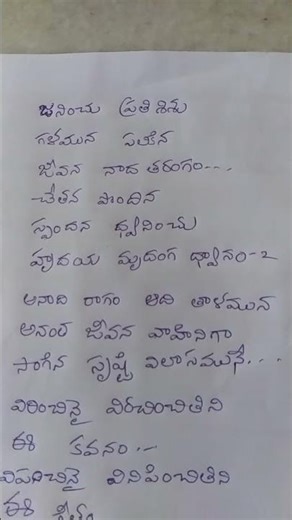 జనించు ప్రతి శిశు
గళమున పలికిన
జీవన నాద తరంగం...
చేతన పొందిన
స్పందన ధ్వనించు
హృదయ మృదంగ ధ్వానం-2
అనాది రాగం ఆది తాళమున
అనంత జీవన వాహినిగా
సాగిన సృష్టి విలాసమునే...
విరించినై విరచించితిని
ఈ కవనం..
విపంచినై వినిపించితిని
ఈ గీతం